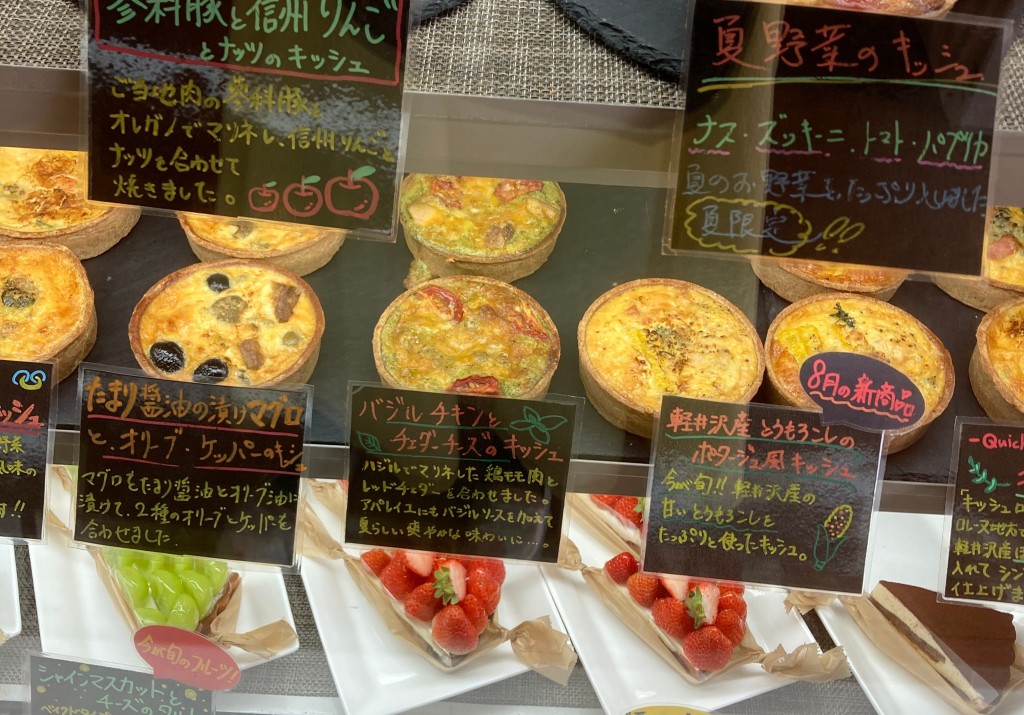 蓼科豚と信州りんご
とナッツのキッシュ
ご当地肉の蓼科豚を
オレガノでマリネし、信州りんごと
ナッツを合わせて
焼きました。
夏野菜のキッシュ
ナス・ズッキーニ・トマト・パプリカ
夏のお野菜をたっぷりとしました
夏限定
たまり醤油の漬けマグロ
と、オリーブ・ケッパーのキッシュ
マグロをたまり醤油とオリーブ油に
漬けて、2種のオリーブとケッパーを
合わせました
バジルチキンと
チェダーチーズのキッシュ
バジルでマリネした鶏モモ肉と
レッドチェダーを合わせました。
アパレイユにもバジルソースを加えて
夏らしい爽やかな味わいに…。
8月の新商品
軽井沢産とうもろこしの
ポタージュ風キッシュ
今が旬!!軽井沢産の
甘いとうもろこしを
たっぷりと使ったキッシュ。
ッシュ
野菜
風味の
す!!
-Quich
「キッシュロ
ロレーヌ地方
軽井沢産
入れてシン
仕上げま
今が旬のフルーツ!
シャインマスカットと
チーズのタルト